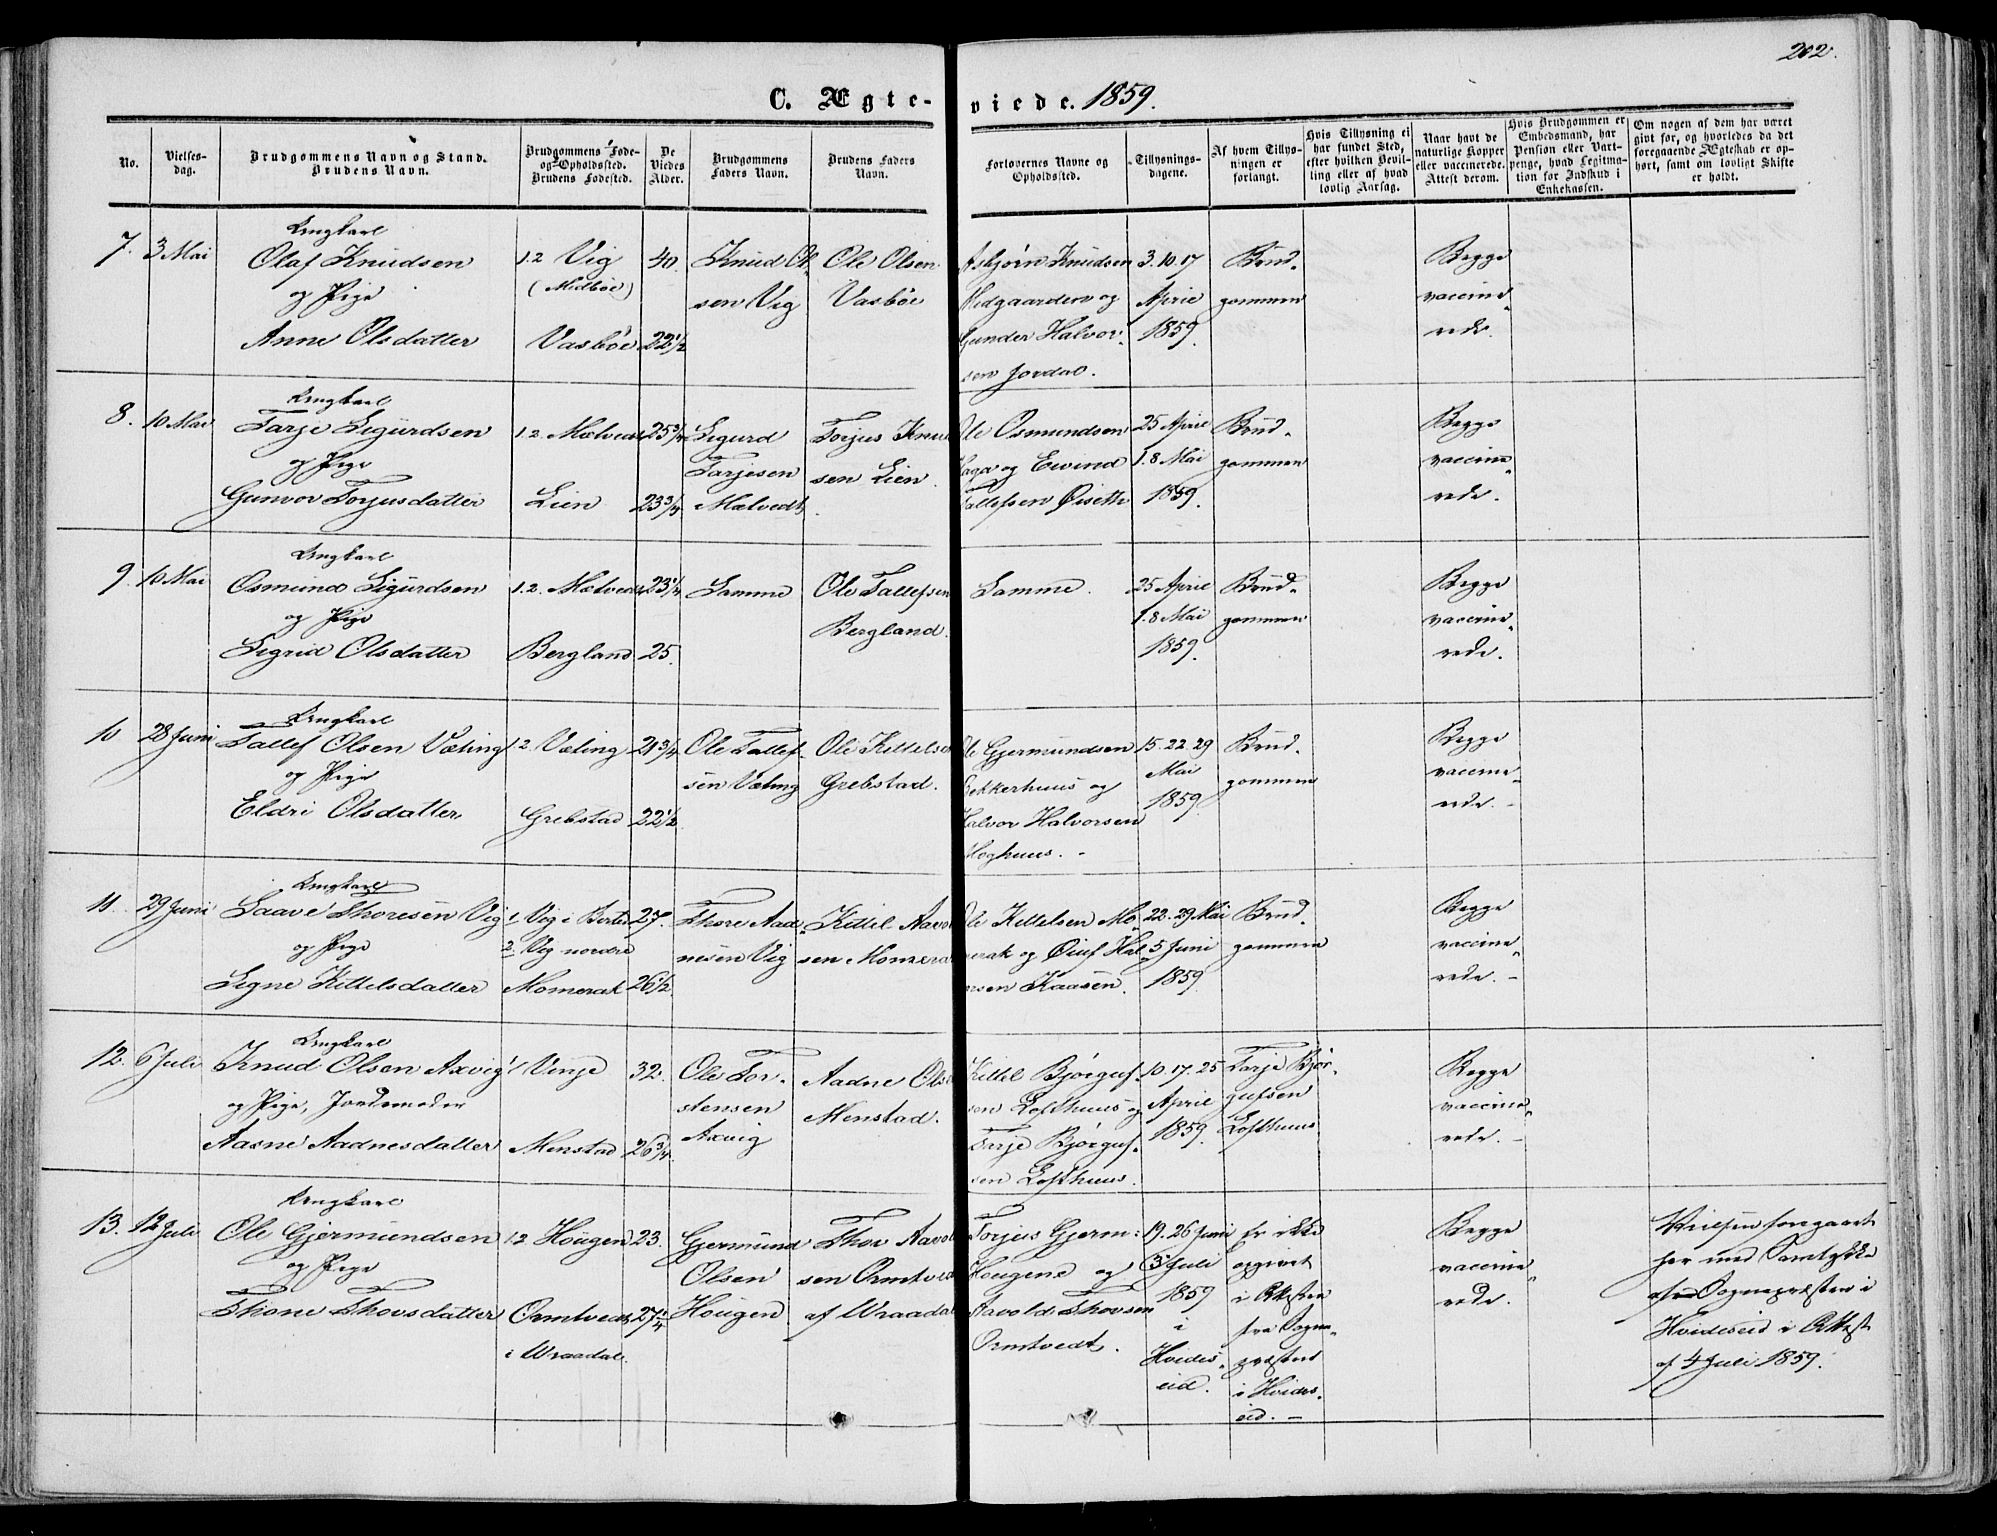 202.
C. Ægte- viede. 1859.
No.
Vielses-
dag.
Brudgommens Navn og Stand.
Brudens Navn.
Brudgommens Føde-
og Opholdssted.
Brudens Fødested.
De
Viedes
Alder.
Brudgommens
Faders Navn.
Brudens Faders
Navn.
Forlovernes Navne og
Opholdssted.
Tillysnings-
dagene.
Af hvem Tillys-
ningen er
forlangt.
Hvis Tillysning ei
har fundet Sted,
efter hvilken Bevil-
ling eller af hvad
lovlig Aarsag.
Naar havt de
naturlige Kopper
eller vaccinerede.
Attest derom.
Hvis Brudgommen er
Embedsmand, har
Pension eller Vart-
penge, hvad Legitima-
tion for Indskud i
Enkekassen.
Om nogen af dem har været
givt før, og hvorledes da det
foregaaende Ægteskab er op-
hørt, samt om lovligt Skifte
er holdt.
7. 3 Mai
Ungkarl
Olaf Knudsen
og Pige
Anne Olsdatter
1.2 Vig
(Midbøe)
Vasbøe
40.
22 1/2
Knud Ol
sen Vig
Ole Olsen
Vasbøe
Asbjørn Knudsen
Midgaarden og
Gunder Halvor-
sen Jordal.
3. 10. 17
April
1859.
Brud-
gommen
Begge
vaccine-
rede.
8. 10 Mai
Ungkarl
Tarje Sigurdsen
og Pige
Gunvor Torjusdatter
1.2. Mælvedt
Lien
25 3/4
23 3/4
Sigurd
Tarjesen
Mælvedt
Torjus Knud
sen Lien.
Ole Osmundsen
Haga og Ewind
Tallefsen Øisett
25 April
1. 8 Mai
1859.
Brud-
gommen
Begge
vaccine-
rede.
9. 10 Mai
Ungkarl
Osmund Sigurdsen
og Pige
Sigrid Olsdatter
1.2. Mælvedt
Bergland
23 1/4
25.
Samme
Ole Tallefsen
Bergland.
Samme.
25 April
1. 8 Mai
1859.
Brud-
gommen
Begge
vaccine-
rede.
10 28 Juni
Ungkarl
Tallef Olsen Væting
og Pige
Eldri Olsdatter
2. Væting
Grebstad
21 3/4
22 1/2
Ole Tallef-
sen Væting
Ole Kittelsen
Grebstad.
Ole Gjermundsen
Bekkerhuus og
Halvor Halvorsen
Moghuus. -
15. 22. 29
Mai
1859.
Brud-
gommen
Begge
vaccine-
rede. -
11. 29 Juni
Ungkarl
Saave Thoresen Vig
og Pige
Signe Kittelsdatter
1. Vig i Borte
2. Vig nordre
Momerak
27.
26 1/2
Thore Aad-
nesen Vig
Kittel Aavol
sen Momerak
Ole Kittelsen Mo-
merak og Øiuf Hal-
vorsen Kaasen.
22. 29 Mai
5 Juni
1859.
Brud-
gommen
Begge
vaccine-
rede. -
12. 6 Juli
Ungkarl
Knud Olsen Axvig
og Pige, Jordemoder
Aasne Aadnesdatter
1/ Vinje
Menstad
32.
26 3/4
Ole Tor-
stensen
Axvig
Aadne Ols
Menstad.
Kittel Bjørguf-
sen Lofthuus og
Tarje Bjørguf-
sen Lofthuus.
10. 17. 25
April
1859.
Tarje Bjør-
gufsen
Lofthuus
Begge
vaccine-
rede. -
13. 12 Juli
Ungkarl
Ole Gjermundsen
og Pige
Thone Thovsdatter
1.2 Hougen
Ormtvedt
i Wraadal.
23.
27 1/4
Gjermund
Olsen
Hougen
Thov Aavol
sen Ormtvedt
af Wraadal
Torjus Gjerm:
Hougene og
Aavold Thovsen
Ormtvedt.
19. 26 Juni
3 Juli
1859
i
Hvides-
eid.
Er ikke
opgivet
i Attesten
fra Sogne-
præsten
i Hvides-
eid. -
Begge
vaccine-
rede.
Vielsen foregaaet
her med Samtykke
af Sognepræsten i
Hvideseid i Attest
af 4 Juli 1859.